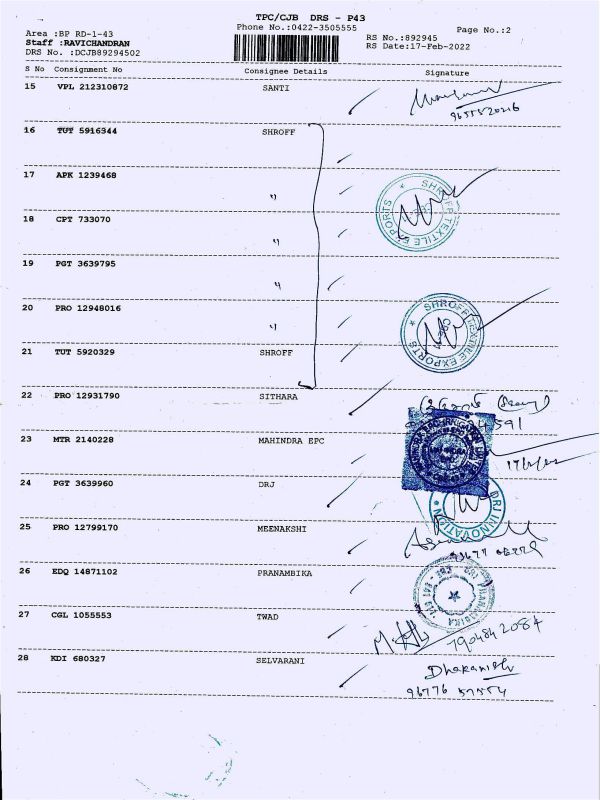 TPC/CJB DRS - P43
Phone No.:0422-3505555
Page No.:2
Area :BP RD-1-43
Staff :RAVICHANDRAN
DRS No. :DCJB89294502
RS No.:892945
RS Date:17-Feb-2022
S No Consignment No Consignee Details Signature
15 VPL 212310872 SANTI
16 TUT 5916344 SHROFF
17 APK 1239468 "
SHROFF TEXTILE EXPORTS
18 CPT 733070 "
19 PGT 3639795 "
20 PRO 12948016 "
SHROFF TEXTILE EXPORTS
21 TUT 5920329 SHROFF
22 PRO 12931790 SITHARA
23 MTR 2140228 MAHINDRA EPC
24 PGT 3639960 DRJ
DRJ INNOVATION
25 PRO 12799170 MEENAKSHI
26 EDQ 14871102 PRANAMBIKA
27 CGL 1055553 TWAD
28 KDI 680327 SELVARANI